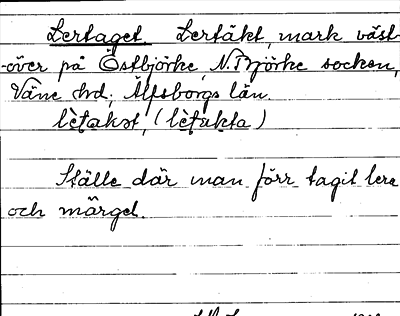 Lertaget. Lertäkt, mark väst-
över på Östbjörke, N. Björke socken,
Väne hd, Älfsborgs län.
Ställe där man förr tagit lera
och märgel.